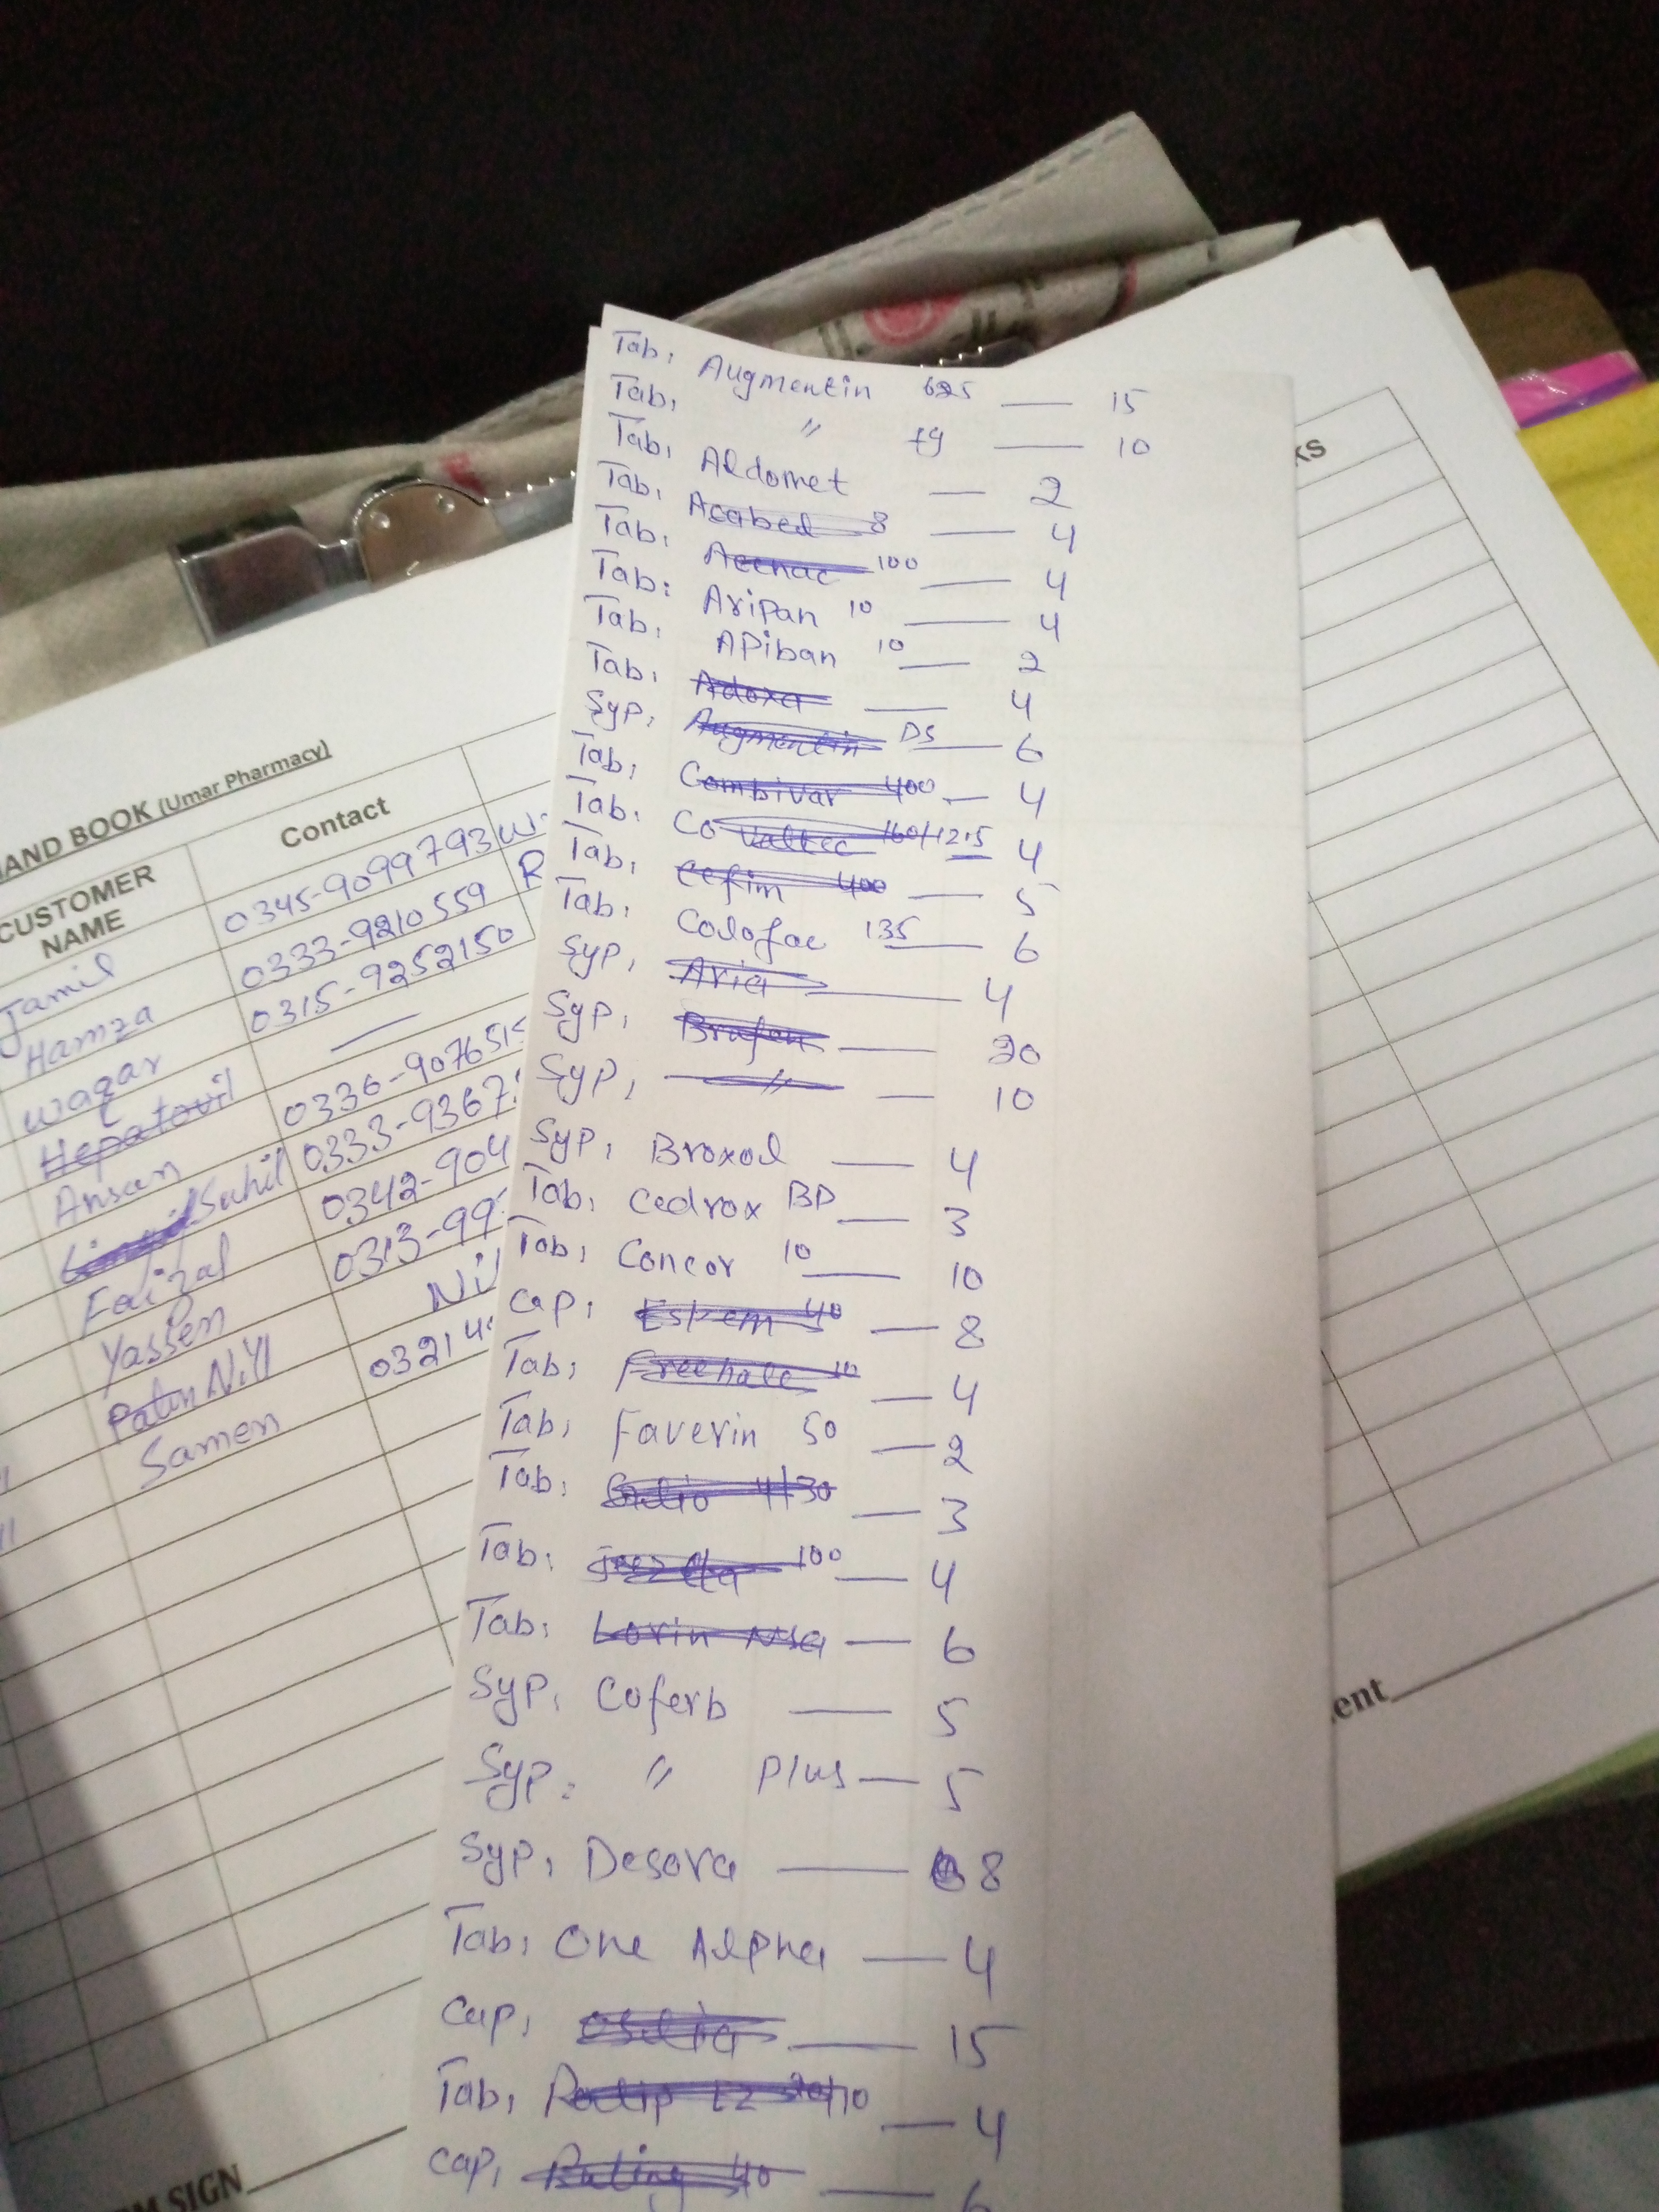 Tab, Augmentin 625 — 15
Tab, " 1g — 10
Tab, Aldomet — 2
Tab, Acabed 8 — 4
Tab, Acenac 100 — 4
Tab: Aripan 10 — 4
Tab, APiban 10 — 2
Tab, Adoxa — 4
Syp, Augmentin DS — 6
Tab, Combivar 400 — 4
Tab, Co Valtec 160/12.5 4
Tab, Cefim 400 — 5
Tab, Colofac 135 — 6
Syp, Aria — 4
Syp, Brufen — 20
Syp, " — 10
Syp, Broxol — 4
Tab, Cedrox BD — 3
Tab, Concor 10 — 10
Cap, Eskem 40 — 8
Tab, Freehale 10 — 4
Tab, Faverin 50 — 2
Tab, 4/30 — 3
Tab: 100 — 4
Tab: Lorin NSA — 6
Syp, Coferb — 5
Syp: " Plus — 5
Syp, Desora — 8
Tab, One Alpha — 4
Cap, — 15
Tab, EZ 20/10 — 4
Cap, Ruling 40 — 6
HAND BOOK (Umar Pharmacy)
CUSTOMER NAME Contact
Jamil 0345-9099793 W
Hamza 0333-9210559 R
Waqar 0315-9252150
Hepatovil —
Ansan 0336-907651
Suhil 0333-9367
Faizal 0342-904
Yassen 0313-99
Nill Nil
Samen 0321
KS
ent
M SIGN